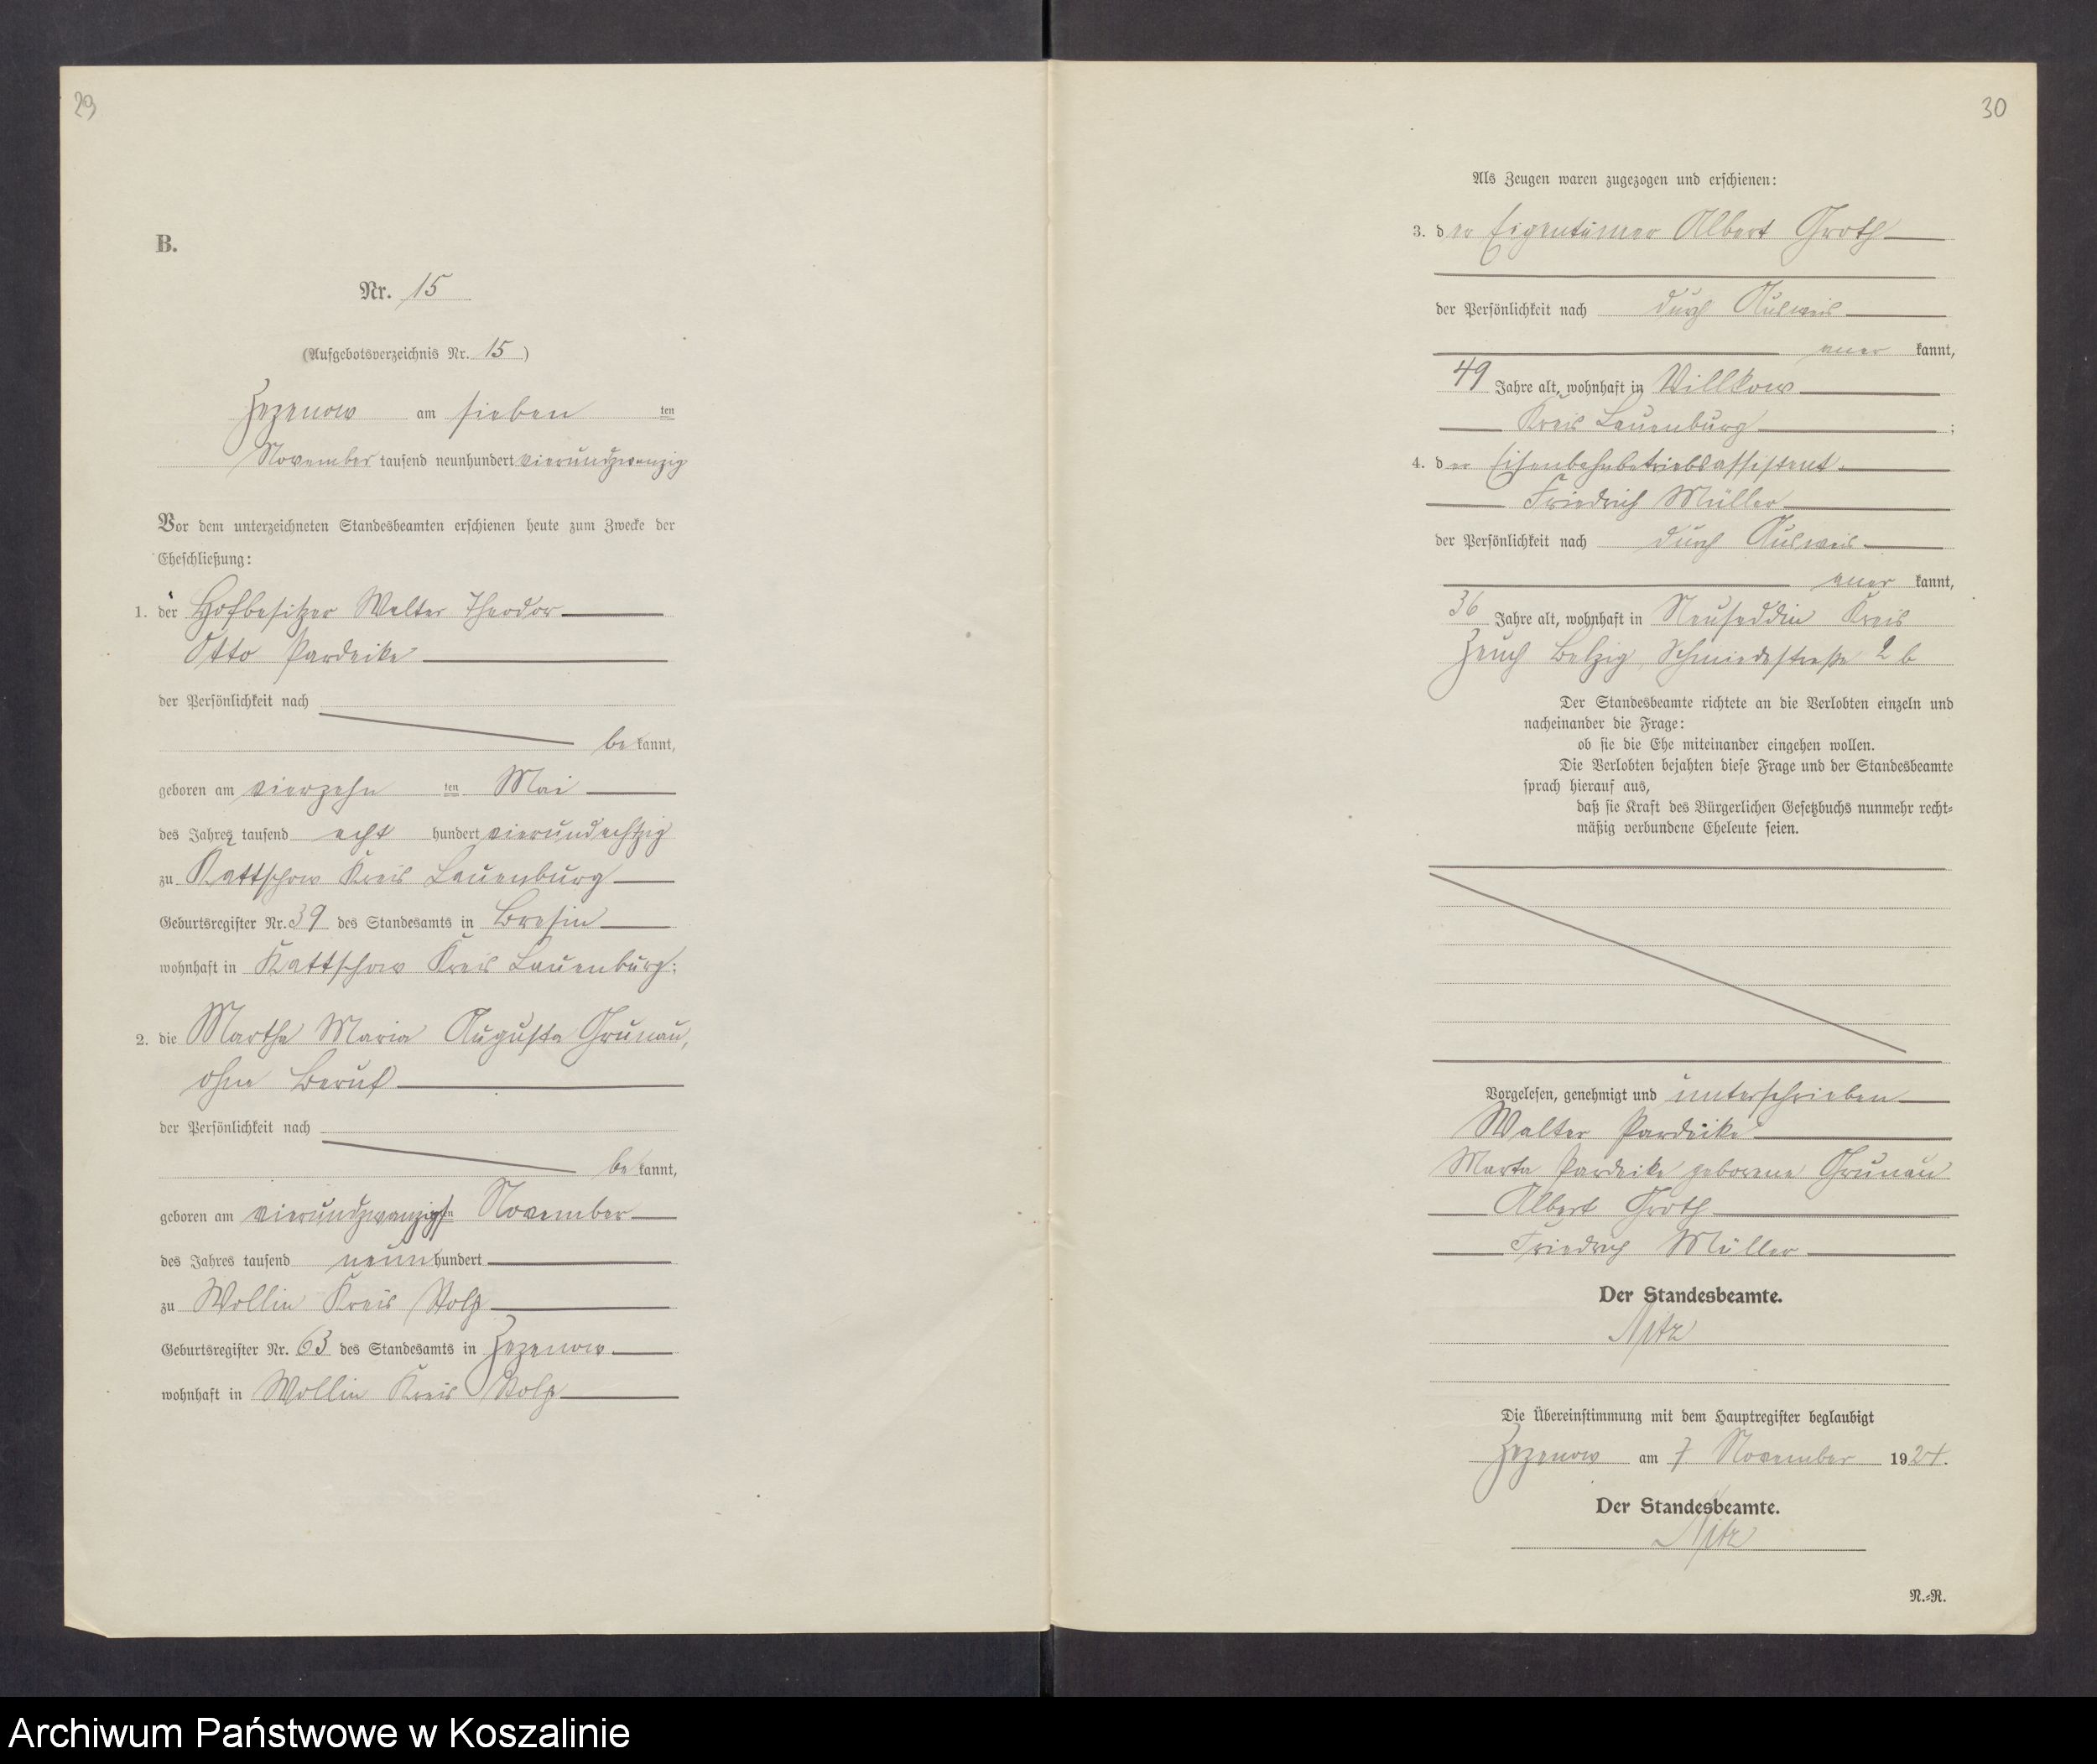 29
B.
Nr. 15
(Aufgebotsverzeichnis Nr. 15)
Zezenow am sieben ten
November tausend neunhundert vierundzwanzig
Vor dem unterzeichneten Standesbeamten erschienen heute zum Zwecke der
Eheschließung:
1. der Hofbesitzer Walter Theodor
Otto Pardeike
der Persönlichkeit nach
be kannt,
geboren am vierzehn ten Mai
des Jahres tausend acht hundert vierundachtzig
zu Kattschow Kreis Lauenburg
Geburtsregister Nr. 39 des Standesamts in Bresin
wohnhaft in Kattschow Kreis Lauenburg;
2. die Martha Maria Augusta Grunau,
ohne Beruf
der Persönlichkeit nach
be kannt,
geboren am vierundzwanzigsten November
des Jahres tausend neun hundert
zu Wollin Kreis Stolp
Geburtsregister Nr. 63 des Standesamts in Zezenow
wohnhaft in Wollin Kreis Stolp
30
Als Zeugen waren zugezogen und erschienen:
3. der Eigentümer Albert Groth
der Persönlichkeit nach durch Ausweis
aner kannt,
49 Jahre alt, wohnhaft in Villkow
Kreis Lauenburg ;
4. der Eisenbahnbetriebsassistent
Friedrich Müller
der Persönlichkeit nach durch Ausweis
aner kannt,
36 Jahre alt, wohnhaft in Neuseddin Kreis
Zauch Belzig, Schmiedestraße 2 b
Der Standesbeamte richtete an die Verlobten einzeln und
nacheinander die Frage:
ob sie die Ehe miteinander eingehen wollen.
Die Verlobten bejahten diese Frage und der Standesbeamte
sprach hierauf aus,
daß sie Kraft des Bürgerlichen Gesetzbuchs nunmehr recht-
mäßig verbundene Eheleute seien.
Vorgelesen, genehmigt und unterschrieben
Walter Pardeike
Marta Pardeike geborene Grunau
Albert Groth
Friedrich Müller
Der Standesbeamte.
Die Übereinstimmung mit dem Hauptregister beglaubigt
Zezenow am 7 November 1924.
Der Standesbeamte.
N.-R.
Archiwum Państwowe w Koszalinie